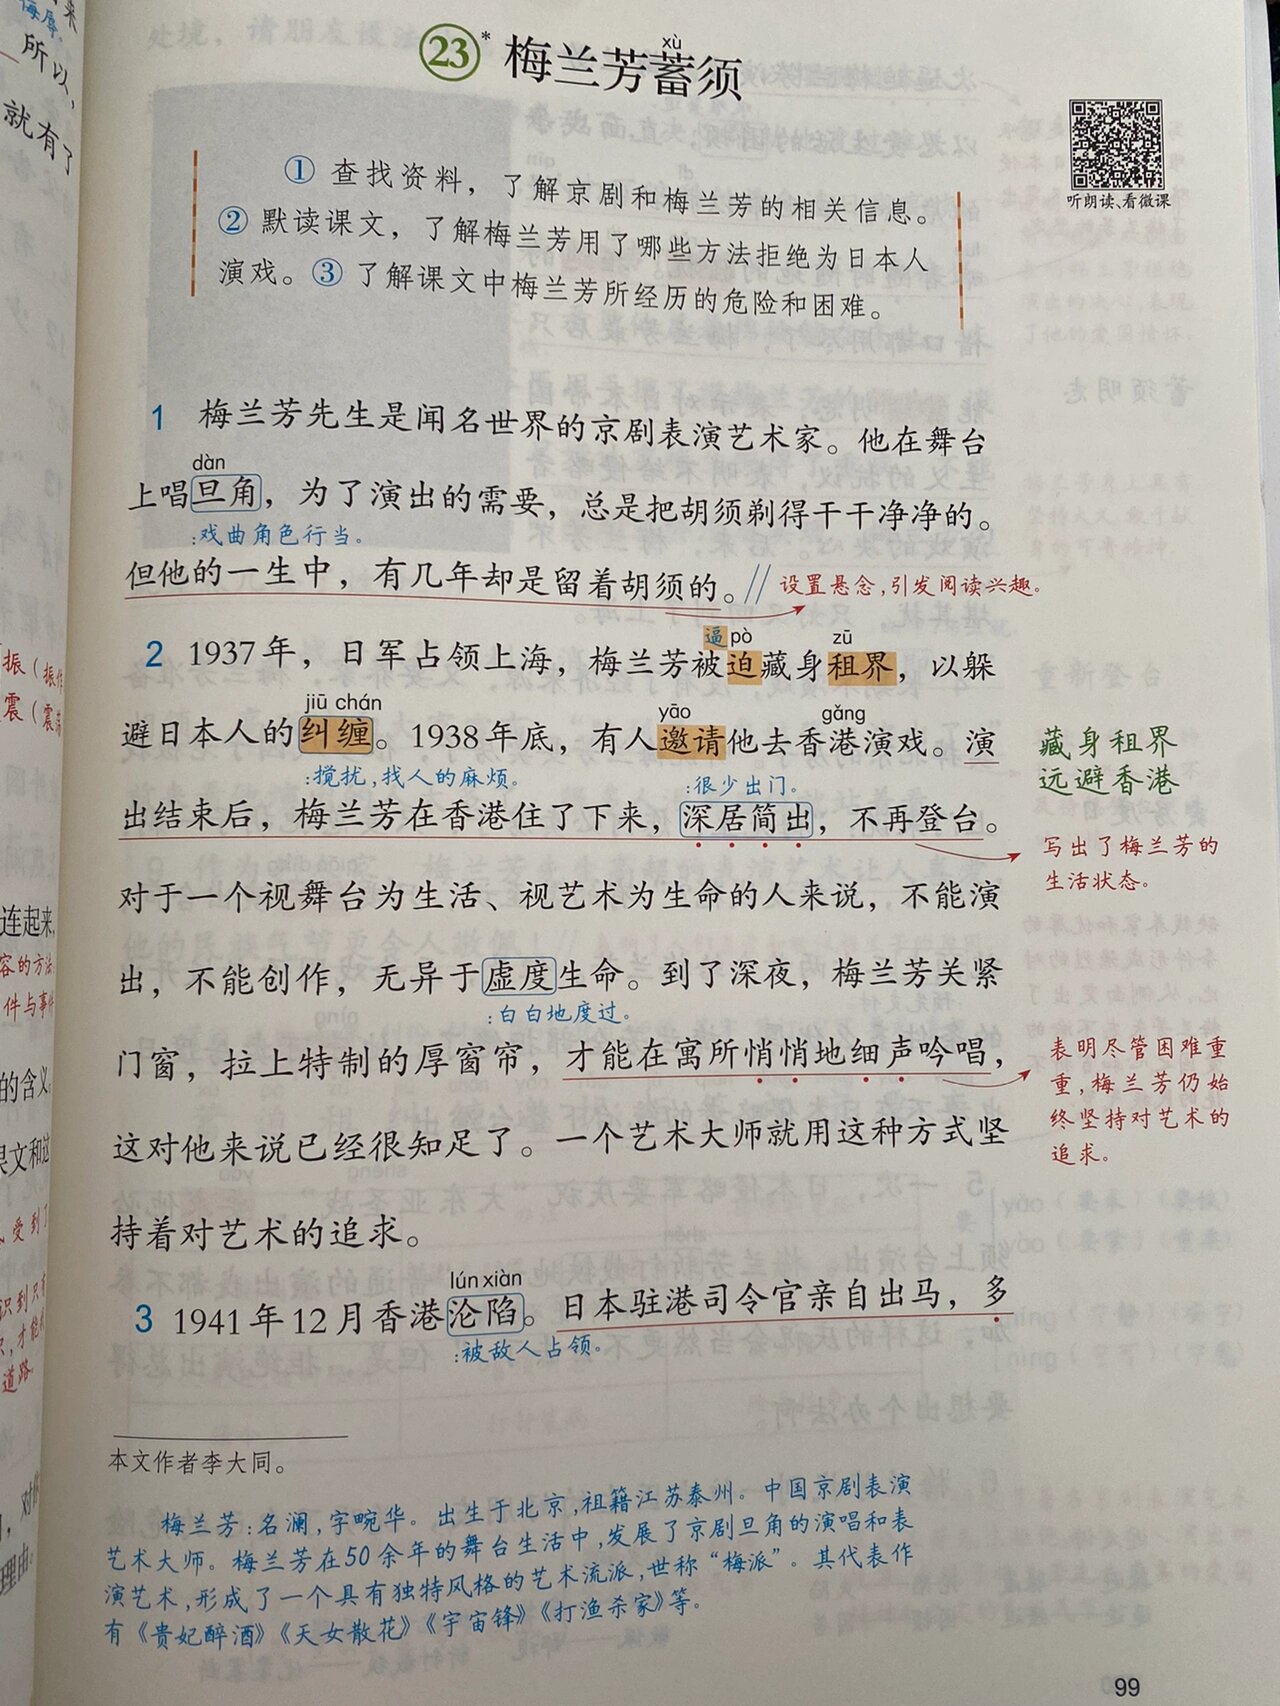 23* 梅兰芳蓄须
xù
听朗读、看微课
① 查找资料，了解京剧和梅兰芳的相关信息。
② 默读课文，了解梅兰芳用了哪些方法拒绝为日本人
演戏。③ 了解课文中梅兰芳所经历的危险和困难。
1 梅兰芳先生是闻名世界的京剧表演艺术家。他在舞台
dàn
上唱旦角，为了演出的需要，总是把胡须剃得干干净净的。
:戏曲角色行当。
但他的一生中，有几年却是留着胡须的。// 设置悬念,引发阅读兴趣。
逼 pò zū
2 1937年，日军占领上海，梅兰芳被迫藏身租界，以躲
jiū chán yāo gǎng
避日本人的纠缠。1938年底，有人邀请他去香港演戏。演
:搅扰,找人的麻烦。 :很少出门。
藏身租界
远避香港
出结束后，梅兰芳在香港住了下来，深居简出，不再登台。
写出了梅兰芳的
生活状态。
对于一个视舞台为生活、视艺术为生命的人来说，不能演
出，不能创作，无异于虚度生命。到了深夜，梅兰芳关紧
:白白地度过。
门窗，拉上特制的厚窗帘，才能在寓所悄悄地细声吟唱，
表明尽管困难重
重,梅兰芳仍始
终坚持对艺术的
追求。
这对他来说已经很知足了。一个艺术大师就用这种方式坚
持着对艺术的追求。
lún xiàn
3 1941年12月香港沦陷。日本驻港司令官亲自出马，多
:被敌人占领。
本文作者李大同。
梅兰芳:名澜,字畹华。出生于北京,祖籍江苏泰州。中国京剧表演
艺术大师。梅兰芳在50余年的舞台生活中,发展了京剧旦角的演唱和表
演艺术,形成了一个具有独特风格的艺术流派,世称“梅派”。其代表作
有《贵妃醉酒》《天女散花》《宇宙锋》《打渔杀家》等。
99
所以，
就有了
振（振作
震（震
连起来，
容的方法
件与事件
的含义
课文和这
受到了
识到只有
道路。
理由。